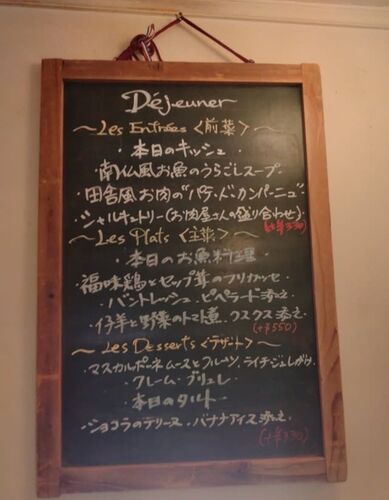 Déjeuner
～Les Entrées〈前菜〉～
・本日のキッシュ
・南仏風お魚のうらごしスープ
・田舎風お肉の"パテ・ド・カンパーニュ"
・シャルキュトリー(お肉屋さんの盛り合わせ)
～Les Plats〈主菜〉～
・本日のお魚料理
・福味鶏とセップ茸のフリカッセ
・バントレッシュ、ピペラード添え
・仔羊と野菜のトマト煮、クスクス添え
(+¥550)
～Les Desserts〈デザート〉～
・マスカルポーネムースとフルーツ、ライチジュレがけ
・クレーム・ブリュレ
・本日のタルト
・ショコラのテリーヌ、バナナアイス添え
(+¥330)